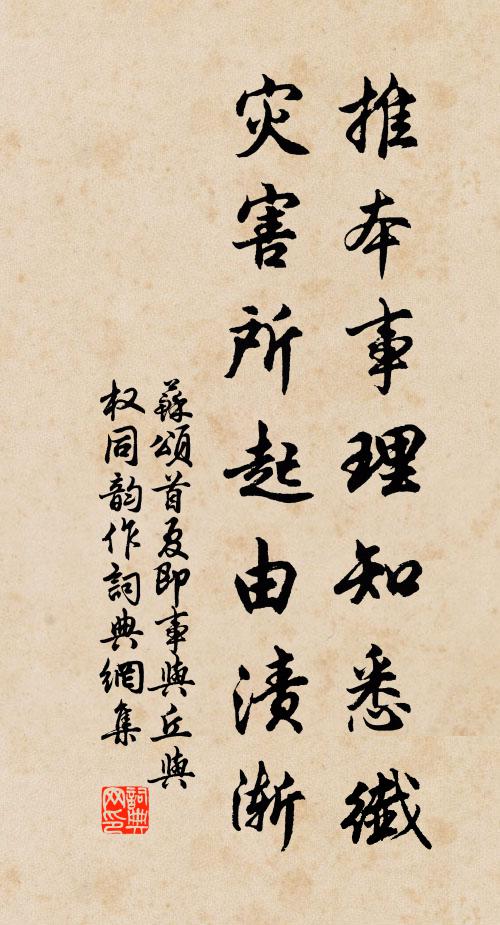 推本事理知悉纖
灾害所起由漬漸
蘇頌首夏即事與丘與
权同韵作詞典網集
詞典网印